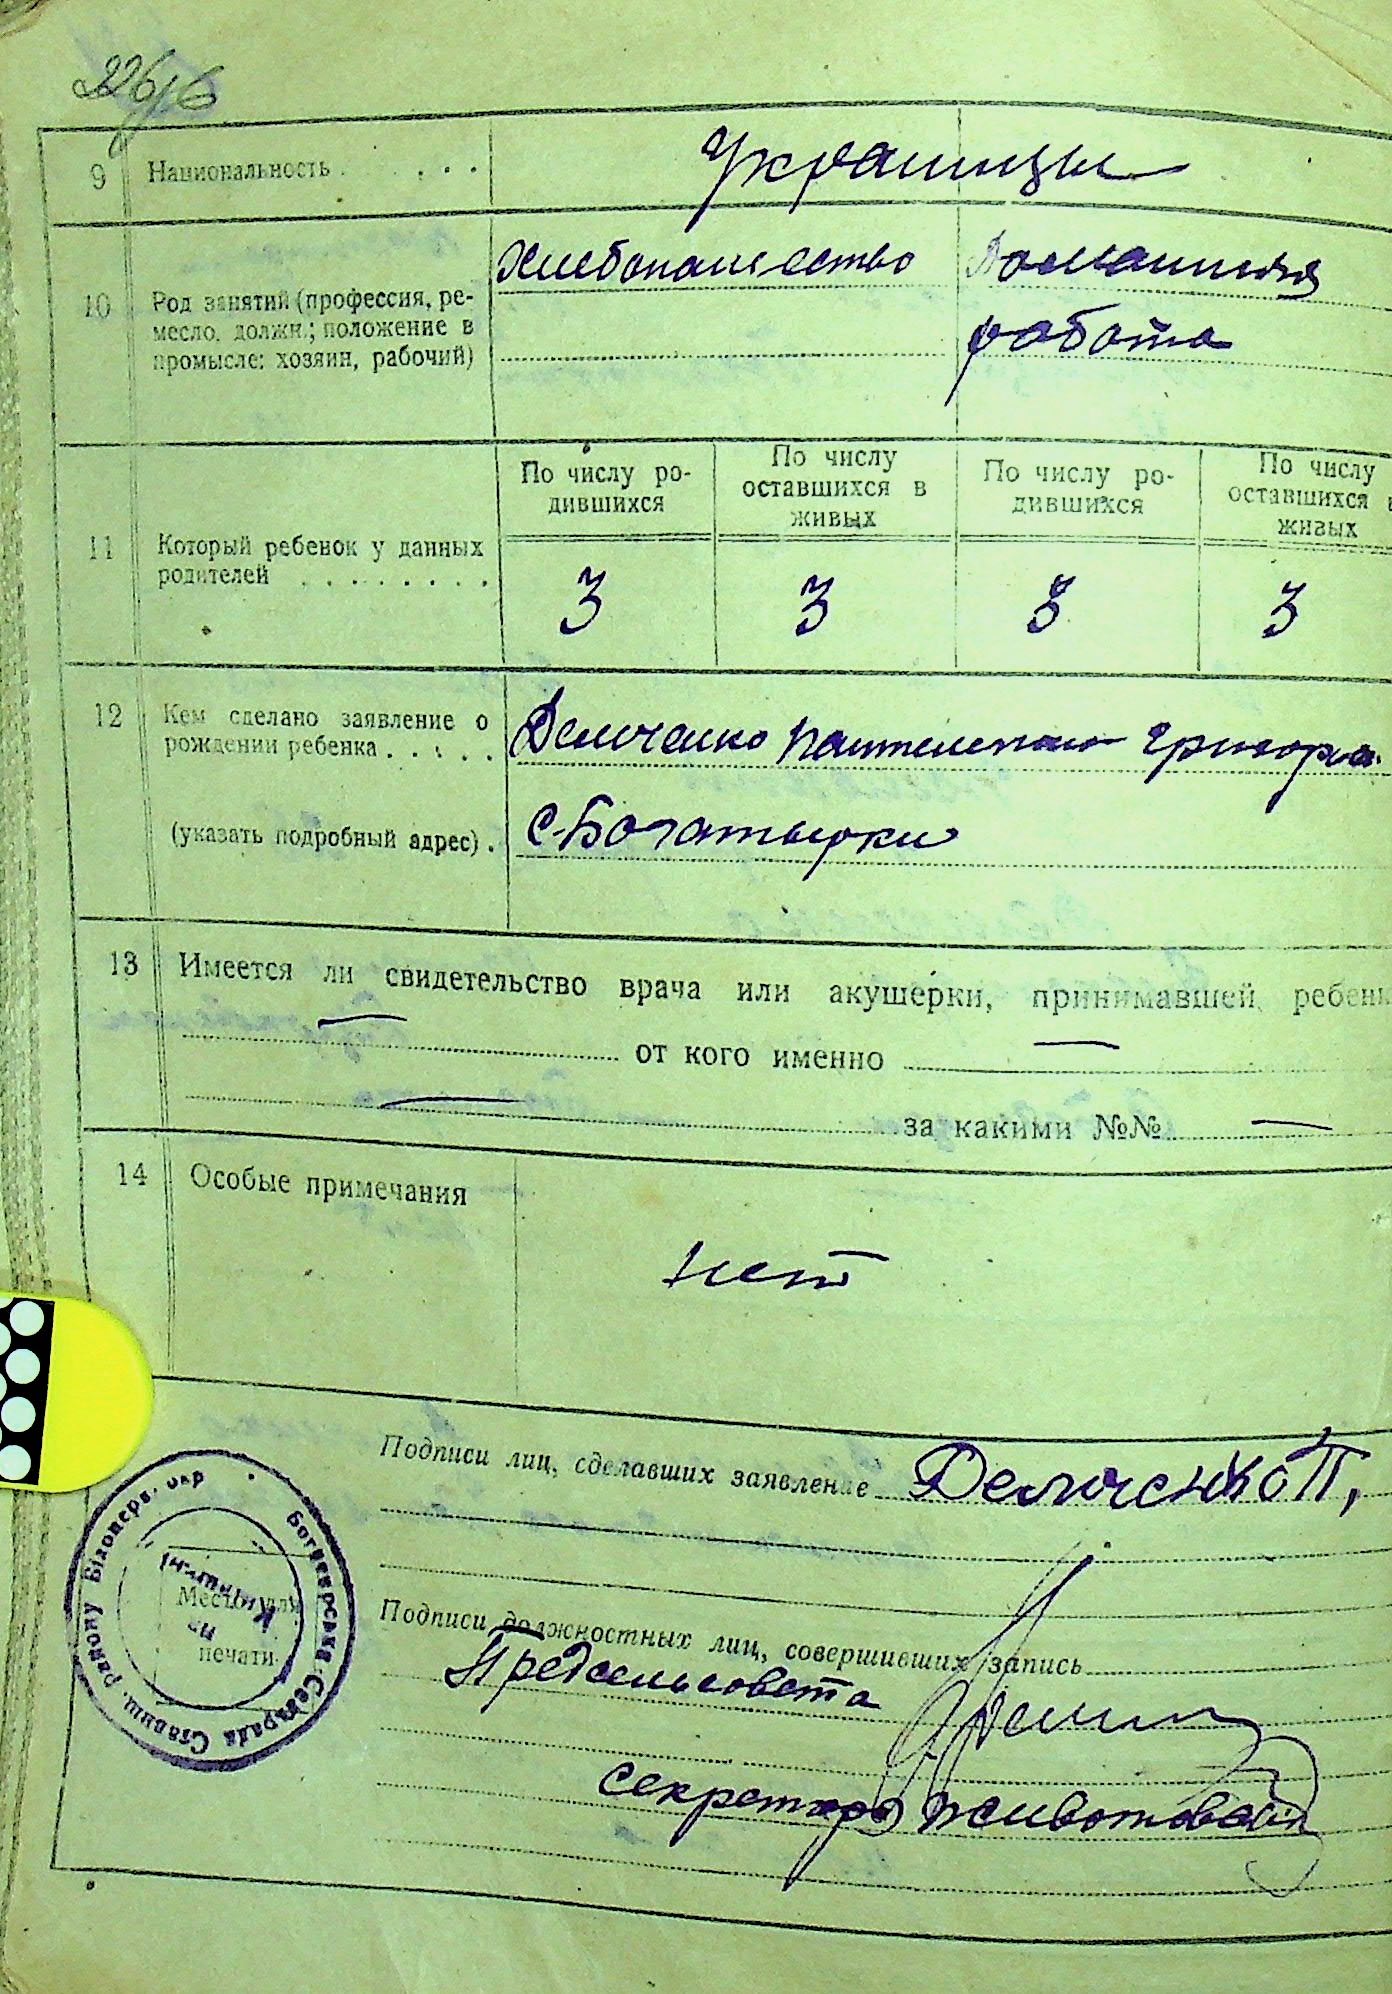 226/б
9 Национальность . . . . . Украинцы
Хлебопашество Домашняя
работа
10 Род занятий (профессия, ре-
месло, должн.; положение в
промысле: хозяин, рабочий)
По числу ро-
дившихся
По числу
оставшихся в
живых
По числу ро-
дившихся
По числу
оставшихся в
живых
11 Который ребенок у данных
родителей . . . . . . . .
3 3 3 3
12 Кем сделано заявление о
рождении ребенка . . . . . Демченко
(указать подробный адрес) . с. Богатырки
13 Имеется ли свидетельство врача или акушерки, принимавшей ребенк
— от кого именно —
— за какими №№ —
14 Особые примечания
нет
Подписи лиц, сделавших заявление Демченко П,
Подписи должностных лиц, совершивших запись
Предсельсовета
секретарь
Место для
печати
Сільрада Ставищ. району Білоцерк. окр
на Київщині